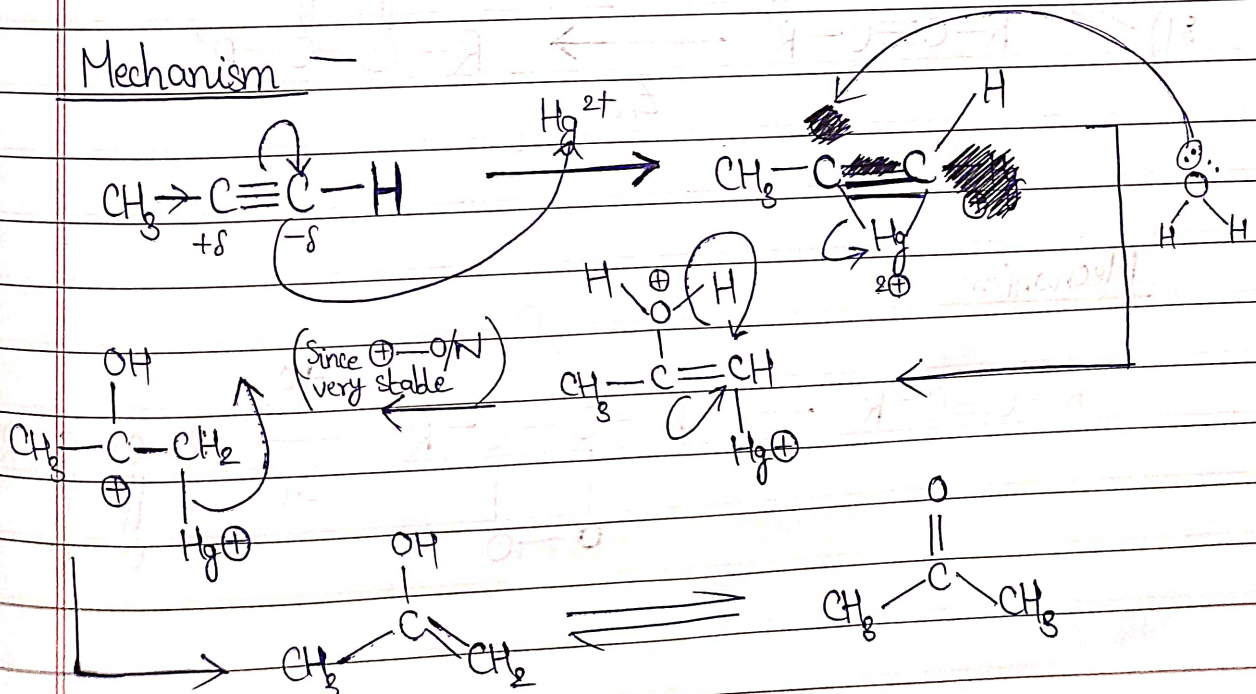 Mechanism –
Hg 2+
CH3 → C ≡ C – H
+δ –δ
CH3 – C = C
H
⊕
Hg
2⊕
O
H H
H ⊕ H
O
CH3 – C = CH
Hg⊕
(Since ⊕–O/N
very stable)
OH
CH3 – C – CH2
⊕
Hg⊕
OH
C
CH3 CH2
⇌
O
C
CH3 CH3